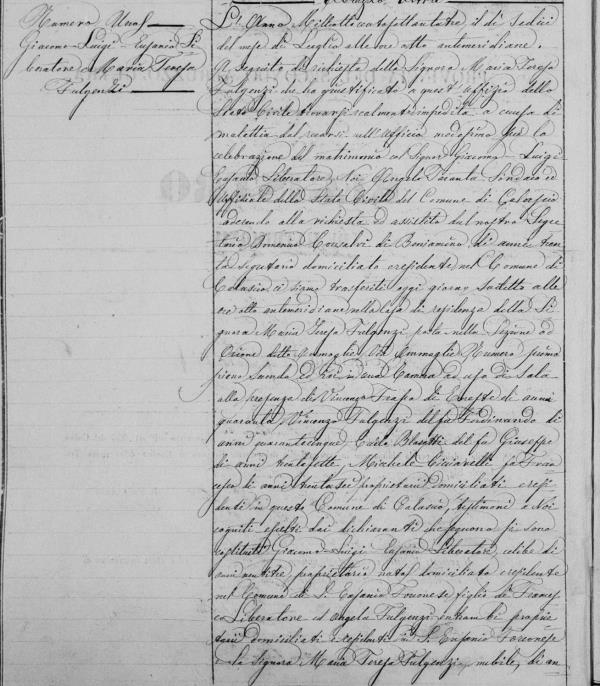 Numero Uno
Giacomo Luigi Eusanio Li
beratore e Maria Teresa
Fulgenzi
L'Anno Milleottocentosettantatre il dì Sedici
del mese di Luglio alle ore otto antimeridiane.
A seguito di richiesta della Signora Maria Teresa
Fulgenzi che ha giustificato a quest'Uffizio dello
Stato Civile trovarsi realmente impedita a causa di
malattia dal recarsi nell'Ufficio medesimo per la
celebrazione del matrimonio col Signor Giacomo Luigi
Eusanio Liberatore, Noi Angelo Sindaco ed
Uffiziale dello Stato Civile del Comune di Calascio
aderendo alla richiesta ed assistito dal nostro Segre
tario Domenico Consalvi di Beniamino di anni tren
ta Segretario domiciliato e residente nel Comune di
Calascio ci siamo trasferiti oggi giorno suddetto alle
ore otto antimeridiane nella Casa di residenza della Si
gnora Maria Teresa Fulgenzi posta nella Sezione ad
detta Via Numero primo
piano secondo ed ivi in una Camera ad uso di Sala
alla presenza di Vincenzo Trasa di Oreste di anni
quaranta Vincenzo Fulgenzi del fu Ferdinando di
anni quarantacinque Carlo Blasetti del fu Giuseppe
di anni trentasette, Michele Ciccarelli fu Fran
cesco di anni trentasei proprietari domiciliati e resi
denti in questo Comune di Calascio, testimoni a Noi
cogniti e scelti dai dichiaranti che seguono si sono
costituiti Giacomo Luigi Eusanio Liberatore, celibe di
anni ventitre, proprietario nato domiciliato e residente
nel Comune di S. Eusanio Forconese figlio di Frances
co Liberatore ed Angela Fulgenzi entrambi proprie
tarii domiciliati e residenti in S. Eusanio Forconese
e la Signora Maria Teresa Fulgenzi, nubile, di an